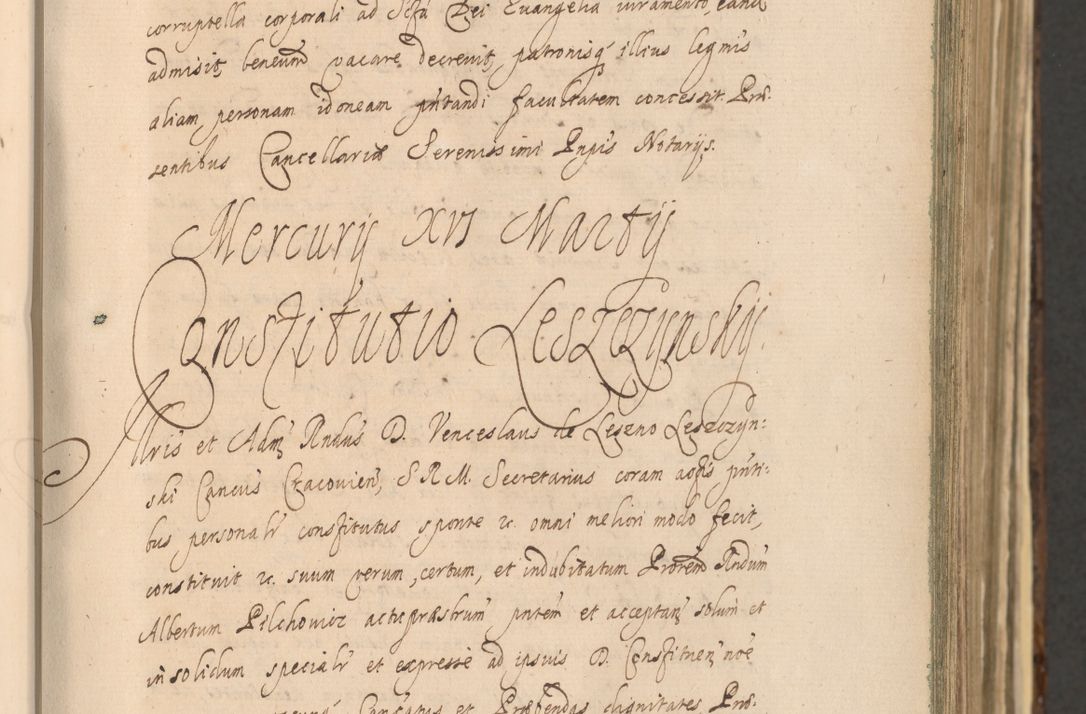 corruptella corporali ad Scta Dei Euangelia iuramento, eand
admisit, beneum vacare decreuit, patronisq illius legmis
aliam personam idoneam pntandi facultatem concessit. Præ:
sentibus Cancellariæ Serenissimi Pnpis Notarijs.
Mercurij XVI Martij
Constitutio Leszczynskij.
Illris et Adm Rndus D. Venceslaus de Leszno Leszczyn:
ski Cancus Cracovien, S R M. Secretarius coram actis pnti:
bus personalr constitutus sponte &c. omni meliori modo fecit,
constituit &c. suum verum, certum, et indubitatum Prorem Rndum
Albertum Pilchowicz actu præstrum pntem et acceptan solum et
in solidum specialr et expresse ad ipsius D. Constituen noe
Cancatus et Præbendas dignitates Præ: